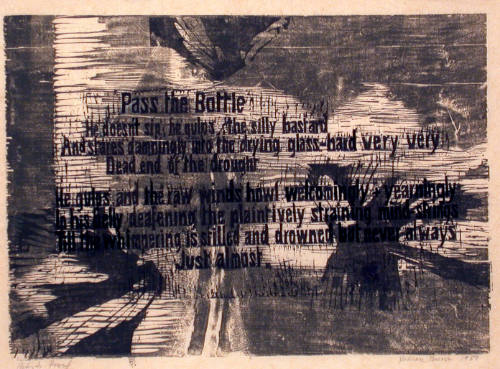 Pass the Bottle
He doesn't sip, he gulps, the silly bastard
And stares damningly into the drying glass-hard very very
Dead end of the drought
He gulps and the raw winds howl welcomingly, yearningly
In his belly deafening the plaintively straining mind-strings
Till the whimpering is stilled and drowned but never always
Just almost.
Artist's Proof 1959